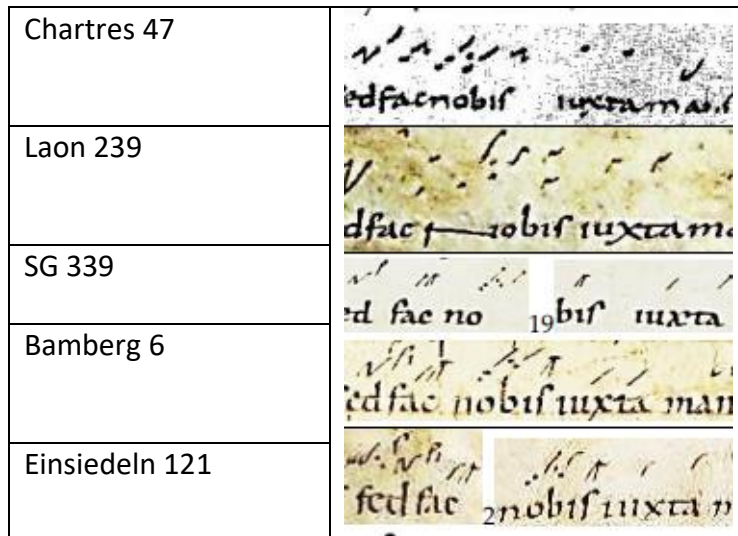 Chartres 47
edfacnobis iuxta man
Laon 239
dfac nobis iuxta ma
SG 339
ed fac no 19 bis iuxta
Bamberg 6
sed fac nobis iuxta man
Einsiedeln 121
sed fac 2 nobis iuxta m